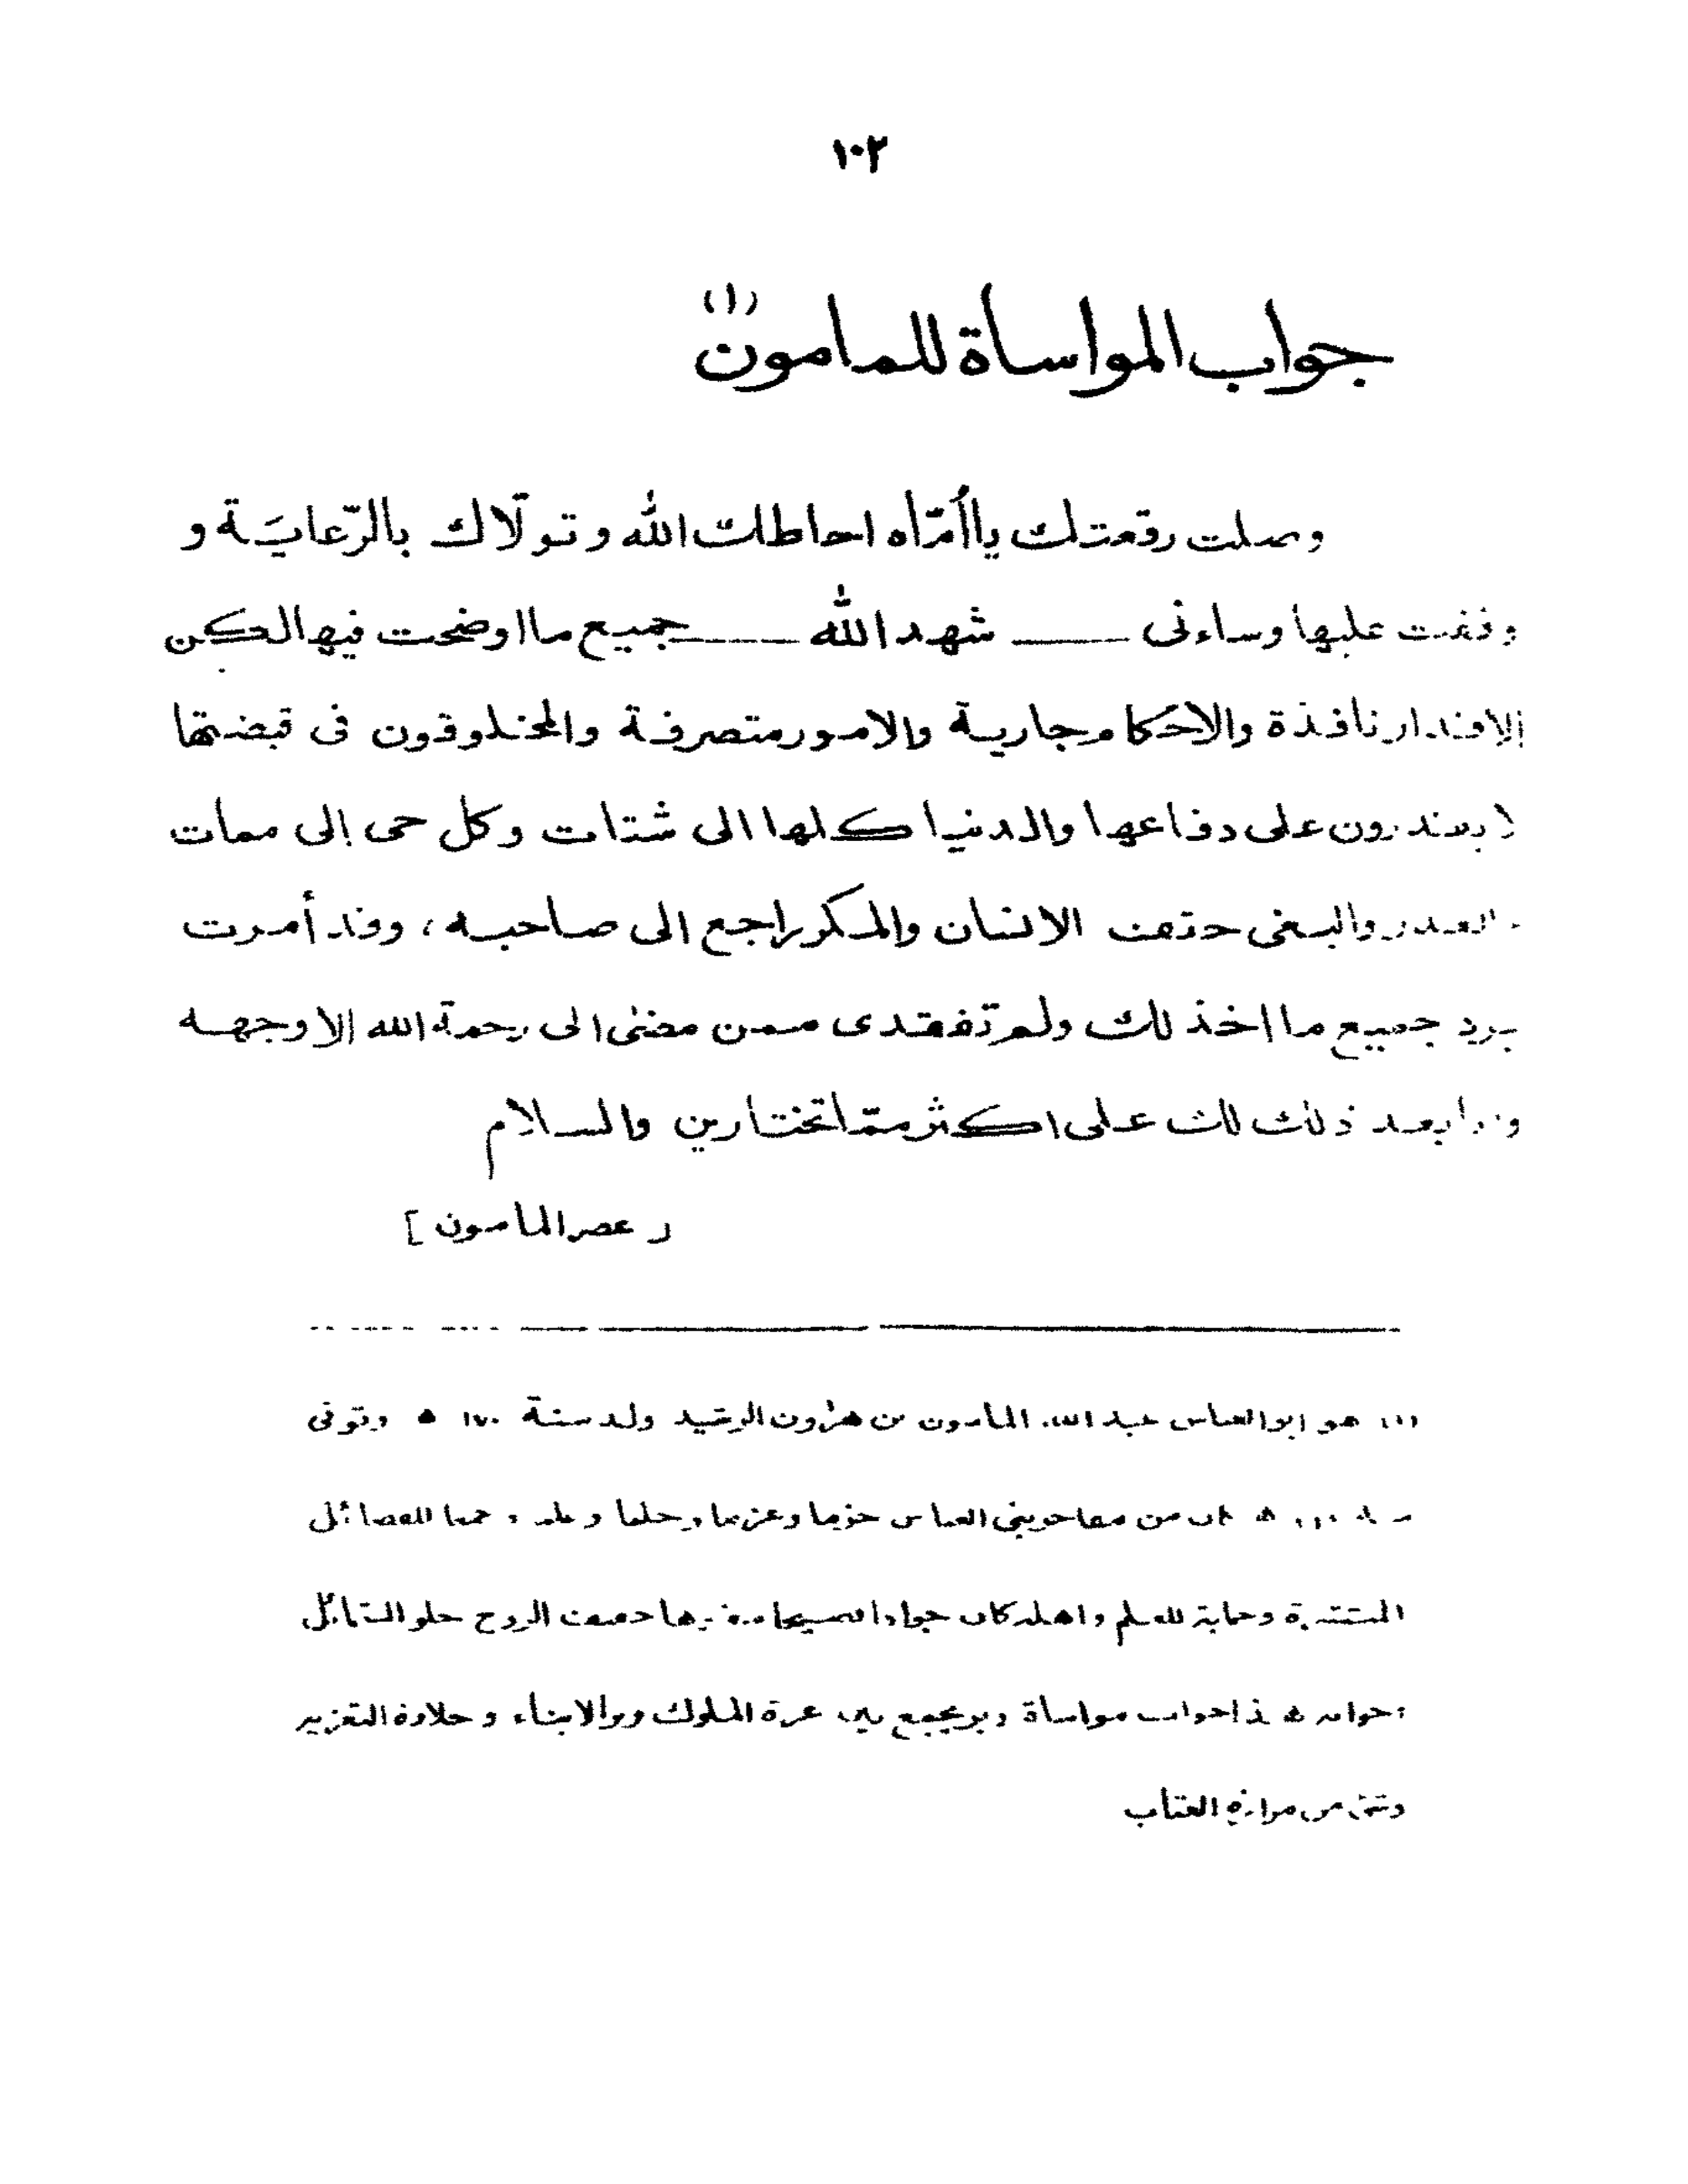 ١٠٢
جواب المواساة للمامون (١)
وصلت رقعتك يا أُمّاه احاطك الله وتولّاك بالرّعايَة و
وقفت عليها وساءنى ـــ شهد الله ـــ جميع ما اوضحت فيها لكن
الاقدار نافذة والاحكام جارية والامور متصرفة والمخلوقون فى قبضتها
لا يقدرون على دفاعها والدنيا كلها الى شتات وكل حى إلى ممات
والغدر والبغى حتف الانسان والمكر راجع الى صاحبه ، وقد أمرت
برد جميع ما اخذ لك ولم تفقدى ممن مضى الى رحمة الله إلا وجهه
وانا بعد ذلك لك على اكثر ممّا تختارين والسلام
[ عصر المامون ]
(١) هو ابو العباس عبد الله المامون بن هارون الرشيد ولد سنة ١٧٠ ه وتوفى
من بنى العباس حزما وعزما وحلما وعلما
وحماية للعلم واهله كان جوادا الروح حلو الشمائل
مواساة وبر يجمع بين عزة الملوك وبر الابناء وحلاوة
من مرارة العتاب